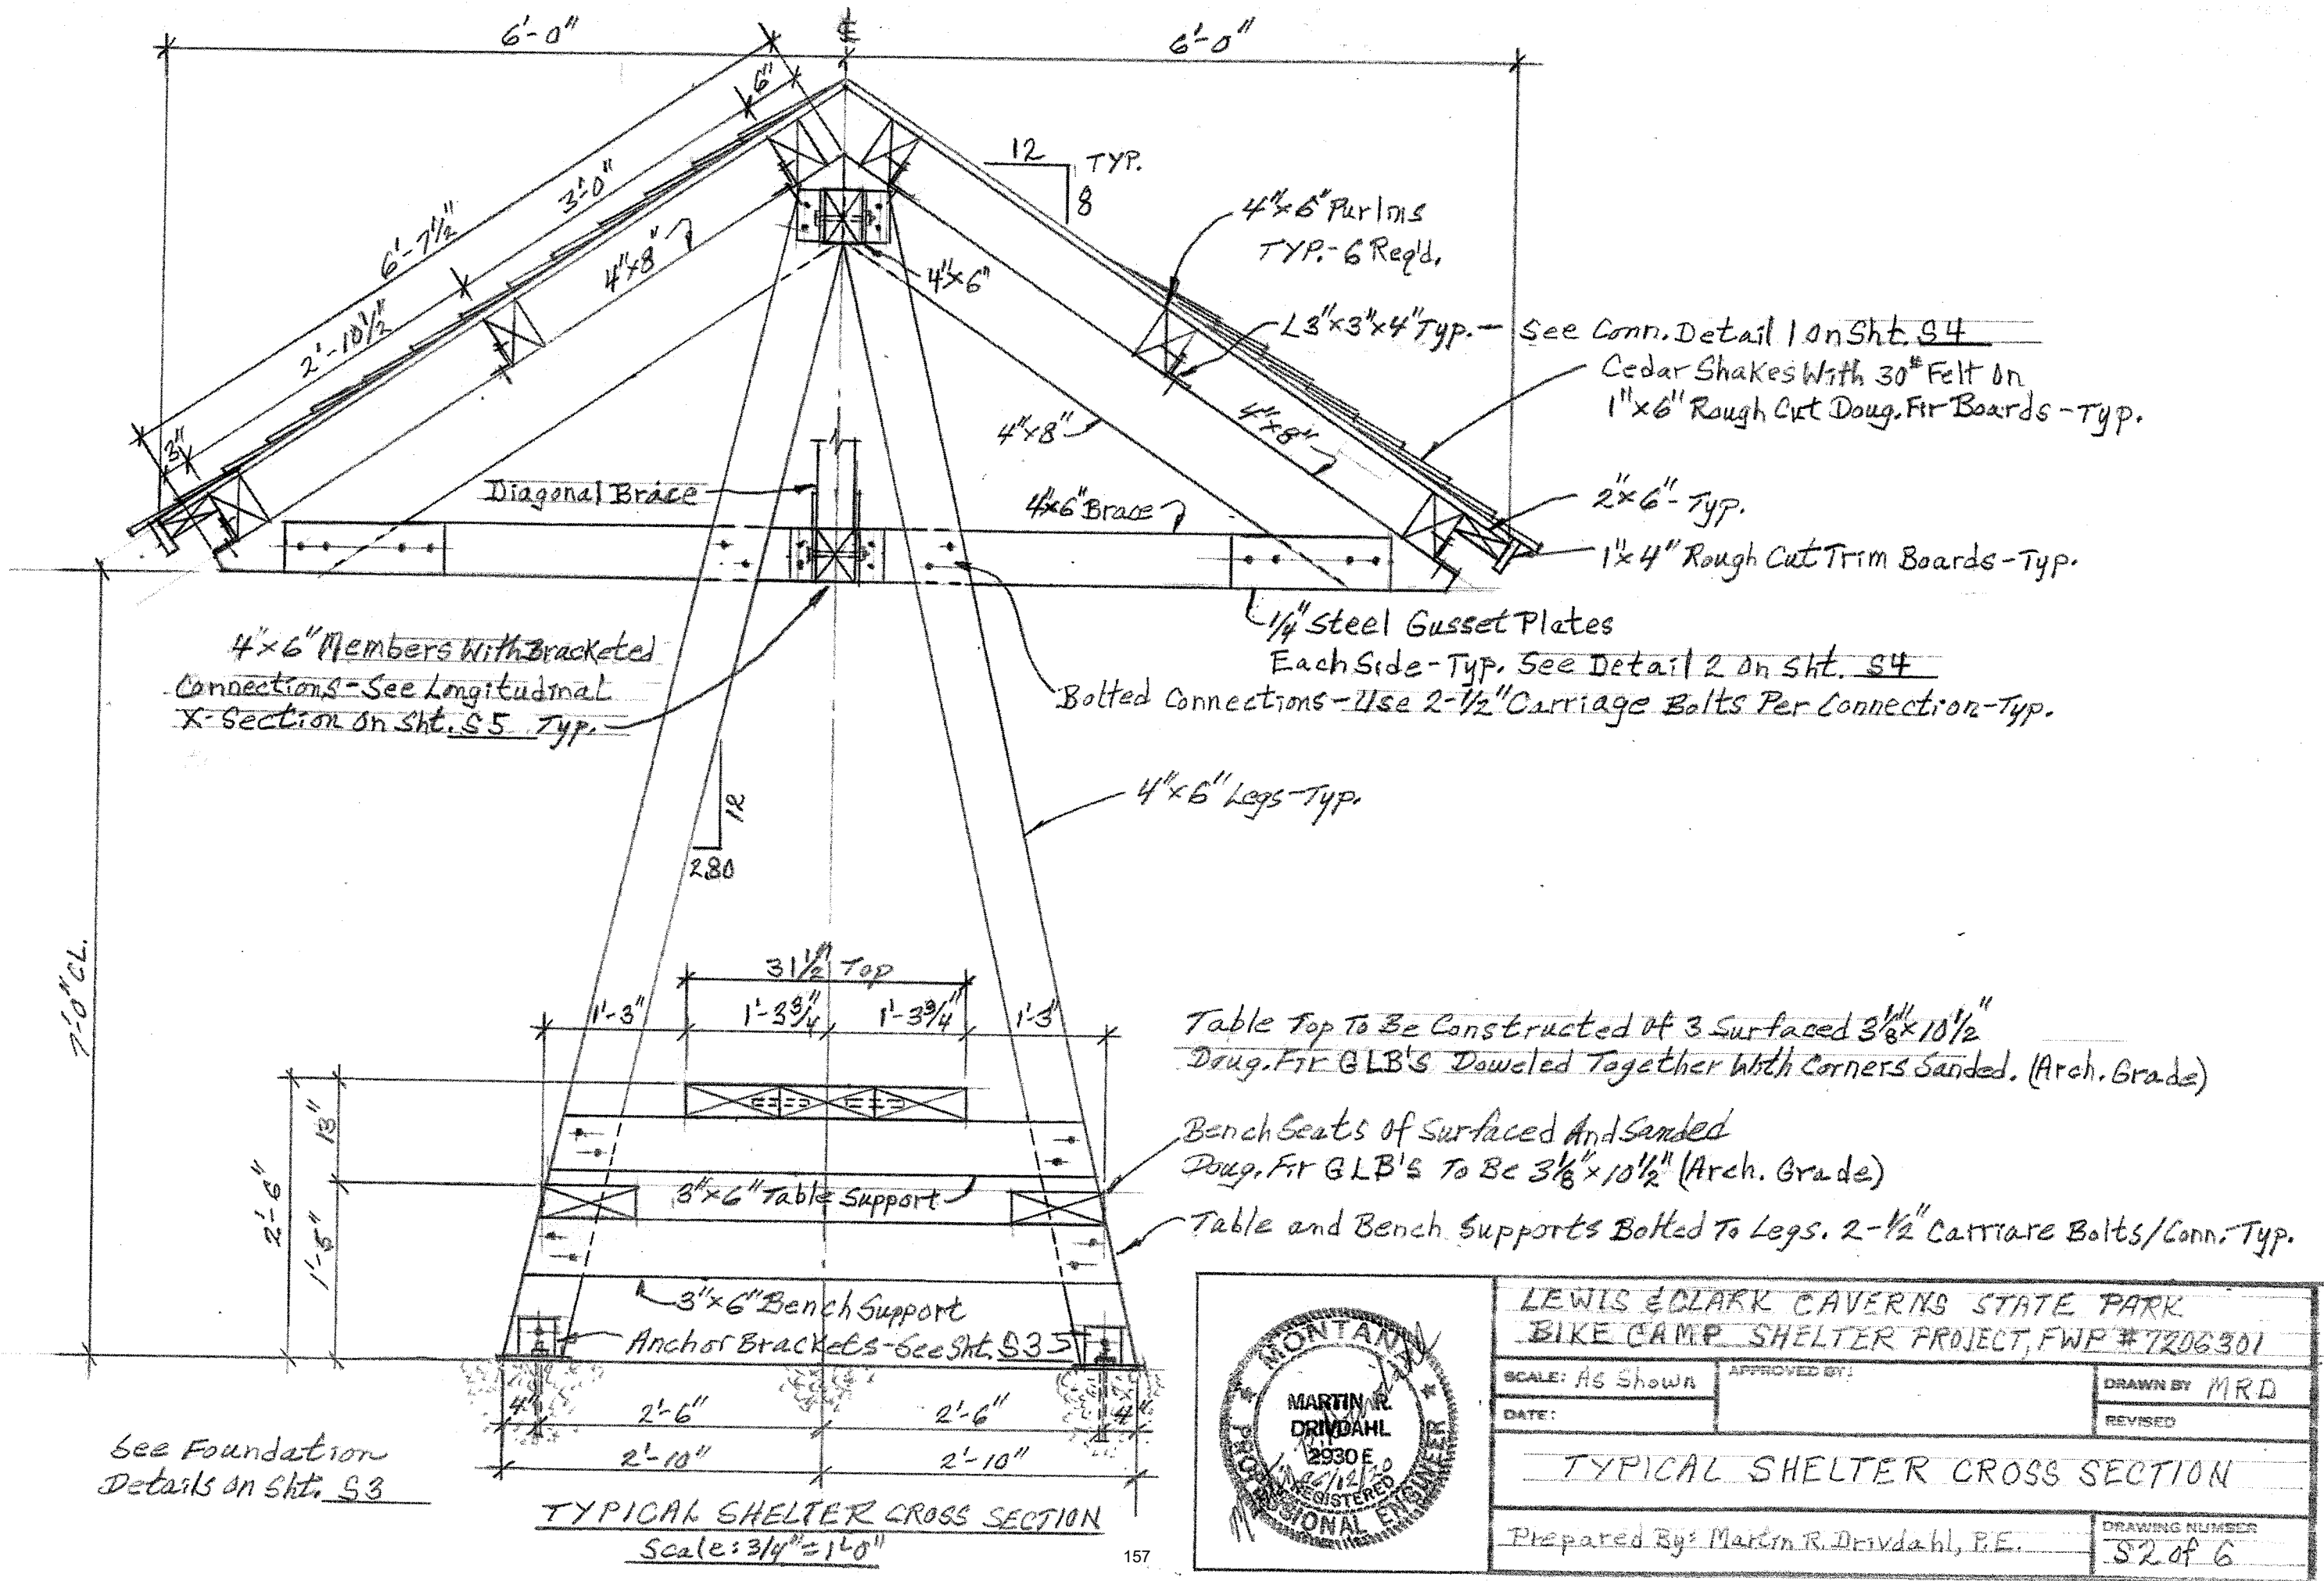 6'-0"
℄
6'-0"
6"
3'-0"
6'-7½"
2'-10½"
3"
4"x8"
12
8
TYP.
4"x6" Purlins
TYP.-6 Req'd.
4"x6"
L3"x3"x4" Typ. - See Conn. Detail 1 On Sht. S4
Cedar Shakes With 30# Felt On
1"x6" Rough Cut Doug. Fir Boards-Typ.
4"x8"
4"x8"
Diagonal Brace
4x6" Brace
2"x6"-Typ.
1"x4" Rough Cut Trim Boards-Typ.
1/4" Steel Gusset Plates
Each Side-Typ. See Detail 2 On Sht. S4
4"x6" Members With Bracketed
Connections-See Longitudinal
X-Section On Sht. S5 Typ.
Bolted Connections-Use 2-1/2" Carriage Bolts Per Connection-Typ.
12
2.80
4"x6" Legs-Typ.
7'-0" CL.
31½" Top
1'-3"
1'-3¾"
1'-3¾"
1'-3"
Table Top To Be Constructed Of 3 Surfaced 3⅛"x10½"
Doug. Fir GLB'S Doweled Together With Corners Sanded. (Arch. Grade)
13"
2'-6"
1'-5"
Bench Seats Of Surfaced And Sanded
Doug. Fir GLB's To Be 3⅛"x10½" (Arch. Grade)
3"x6" Table Support
Table and Bench Supports Bolted To Legs. 2-½" Carriare Bolts/Conn.-Typ.
3"x6" Bench Support
Anchor Brackets-See Sht. S3
4"
2'-6"
2'-6"
4"
2'-10"
2'-10"
See Foundation
Details On Sht. S3
TYPICAL SHELTER CROSS SECTION
Scale: 3/4"=1'-0"
157
MONTANA
MARTIN R.
DRIVDAHL
2930 E
REGISTERED
PROFESSIONAL ENGINEER
LEWIS & CLARK CAVERNS STATE PARK
BIKE CAMP SHELTER PROJECT, FWP #7206301
SCALE: As Shown
APPROVED BY:
DRAWN BY MRD
DATE:
REVISED
TYPICAL SHELTER CROSS SECTION
Prepared By: Martin R. Drivdahl, P.E.
DRAWING NUMBER
S2 of 6